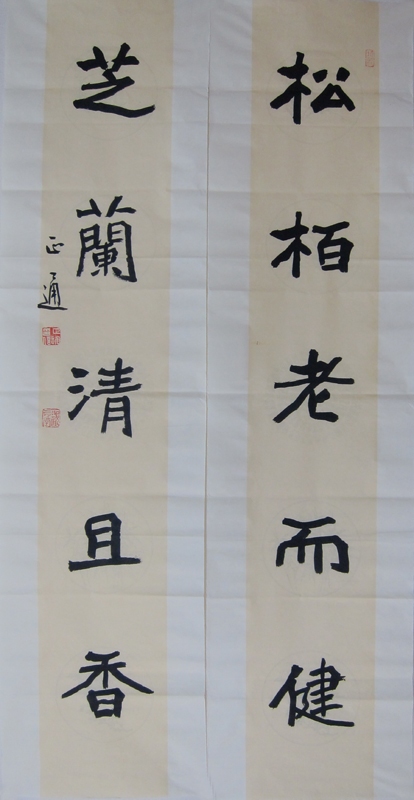 松柏老而健
芝蘭清且香
正通